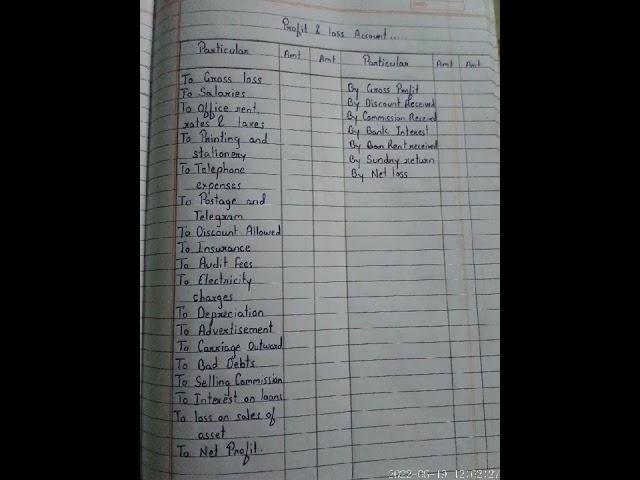 Profit & loss Account...
Particular Amt Amt Particular Amt Amt
To Gross loss
To Salaries
To Office rent,
rates & taxes
To Printing and
stationery
To Telephone
expenses
To Postage and
Telegram
To Discount Allowed
To Insurance
To Audit fees
To Electricity
charges
To Depreciation
To Advertisement
To Carriage Outward
To Bad Debts
To Selling Commission
To Interest on loans
To loss on sales of
asset
To Net Profit.
By Gross Profit
By Discount Received
By Commission Received
By Bank Interest
By Rent received
By Sundry return
By Net loss
2022-06-19 12:02:27